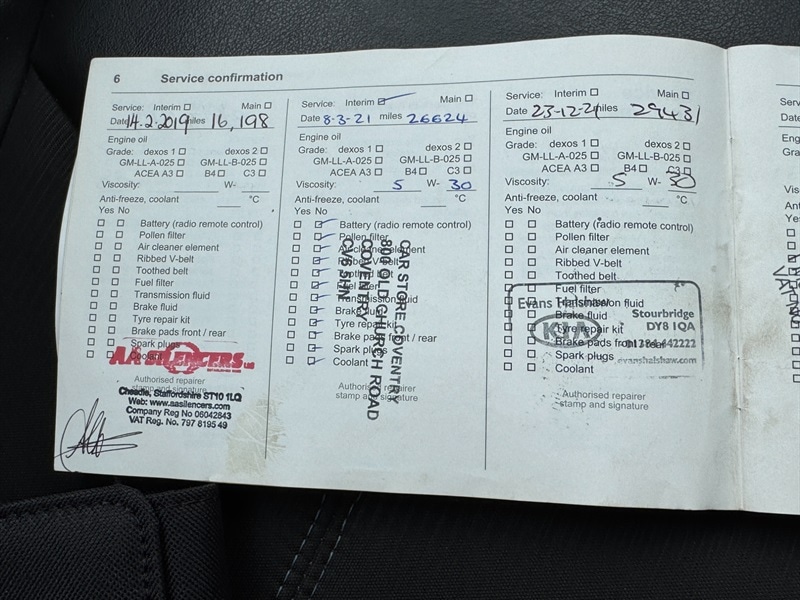 6 Service confirmation
Service: Interim Main
Date 14.2.2019 miles 16,198
Engine oil
Grade: dexos 1 dexos 2
GM-LL-A-025 GM-LL-B-025
ACEA A3 B4 C3
Viscosity: W-
Anti-freeze, coolant °C
Yes No
Battery (radio remote control)
Pollen filter
Air cleaner element
Ribbed V-belt
Toothed belt
Fuel filter
Transmission fluid
Brake fluid
Tyre repair kit
Brake pads front / rear
Spark plugs
Coolant
AA SILENCERS Ltd
Authorised repairer
stamp and signature
Cheadle, Staffordshire ST10 1LQ
Web: www.aasilencers.com
Company Reg No 06042843
VAT Reg. No. 797 8195 49
Service: Interim Main
Date 8-3-21 miles 26624
Engine oil
Grade: dexos 1 dexos 2
GM-LL-A-025 GM-LL-B-025
ACEA A3 B4 C3
Viscosity: 5 W- 30
Anti-freeze, coolant °C
Yes No
Battery (radio remote control)
Pollen filter
Air cleaner element
Ribbed V-belt
Toothed belt
Fuel filter
Transmission fluid
Brake fluid
Tyre repair kit
Brake pads front / rear
Spark plugs
Coolant
Authorised repairer
stamp and signature
CAR STORE COVENTRY
800 OLD CHURCH ROAD
COVENTRY
Service: Interim Main
Date 23-12-21 miles 29431
Engine oil
Grade: dexos 1 dexos 2
GM-LL-A-025 GM-LL-B-025
ACEA A3 B4 C3
Viscosity: 5 W- 30
Anti-freeze, coolant °C
Yes No
Battery (radio remote control)
Pollen filter
Air cleaner element
Ribbed V-belt
Toothed belt
Fuel filter
Transmission fluid
Brake fluid
Tyre repair kit
Brake pads front / rear
Spark plugs
Coolant
Evans Halshaw
KIA
Stourbridge
DY8 1QA
01384 442222
evanshalshaw.com
Authorised repairer
stamp and signature